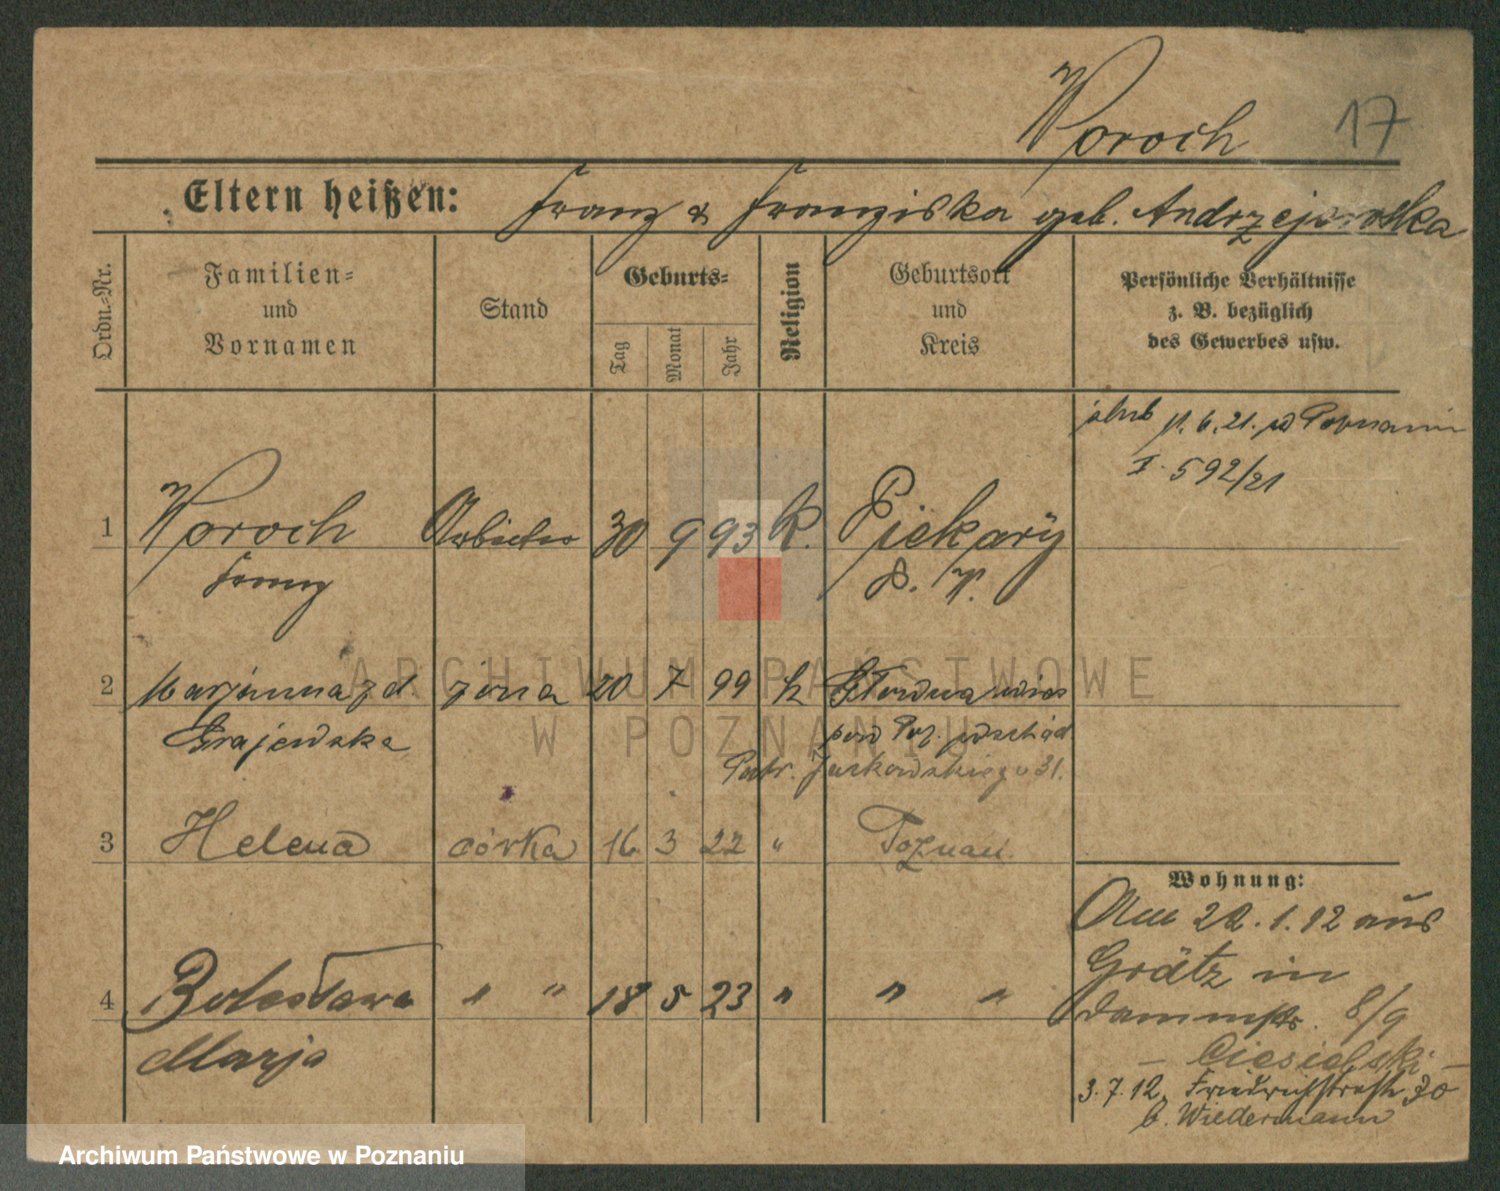 Woroch 17
Eltern heißen: Franz & Franziska geb. Andrzejewska
Ordn.-Nr.
Familien=
und
Vornamen
Stand
Geburts=
Tag
Monat
Jahr
Religion
Geburtsort
und
Kreis
Persönliche Verhältnisse
z. B. bezüglich
des Gewerbes usw.
ślub 11.6.21. w Poznaniu
I. 592/21
1 Woroch Arbeiter 30 9 93 K. Piekary
Franz
2 Marjanna z d żona 20 7 99 k
Grajewska
pow Poz. wschód
Patr. Jackowskiego 31.
3 Helena córka 16 3 22 " Poznań
4 Bolesława " " 18 5 23 " " "
Marja
Wohnung:
Am 22.1.12 aus
Grätz in
Dammstr. 8/9
– Ciesielski –
3.7.12. Friedrichstraße 30
b. Wiedermann
ARCHIWUM PAŃSTWOWE
W POZNANIU
Archiwum Państwowe w Poznaniu